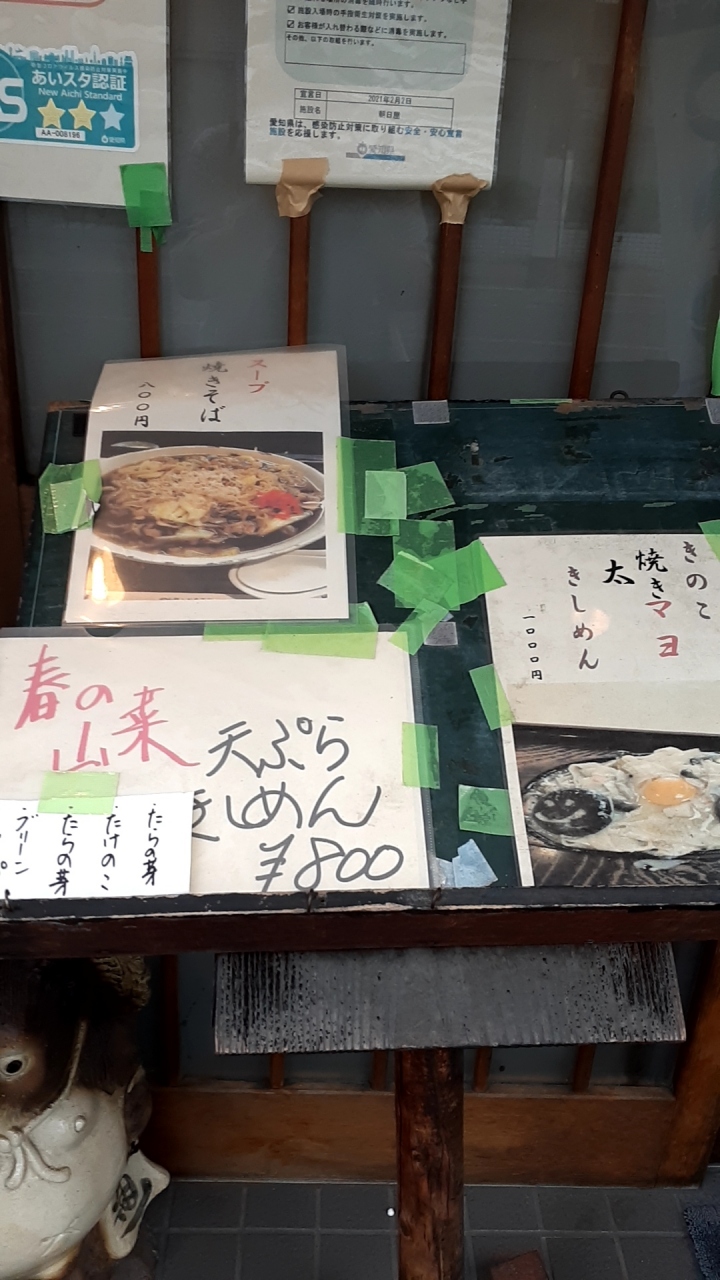 あいスタ認証
New Aichi Standard
AA-008196
施設入場時の手指衛生対策を実施します。
お客様が入れ替わる際などに消毒を実施します。
その他、以下の取組を行います。
宣言日 2021年2月2日
施設名 朝日屋
愛知県は、感染防止対策に取り組む安全・安心宣言
施設を応援します。
愛知県
スープ
焼きそば
八〇〇円
きのこ
焼きマヨ
太
きしめん
一〇〇〇円
春の
山菜
天ぷら
きしめん
¥800
たらの芽
たけのこ
たらの芽
グリーン